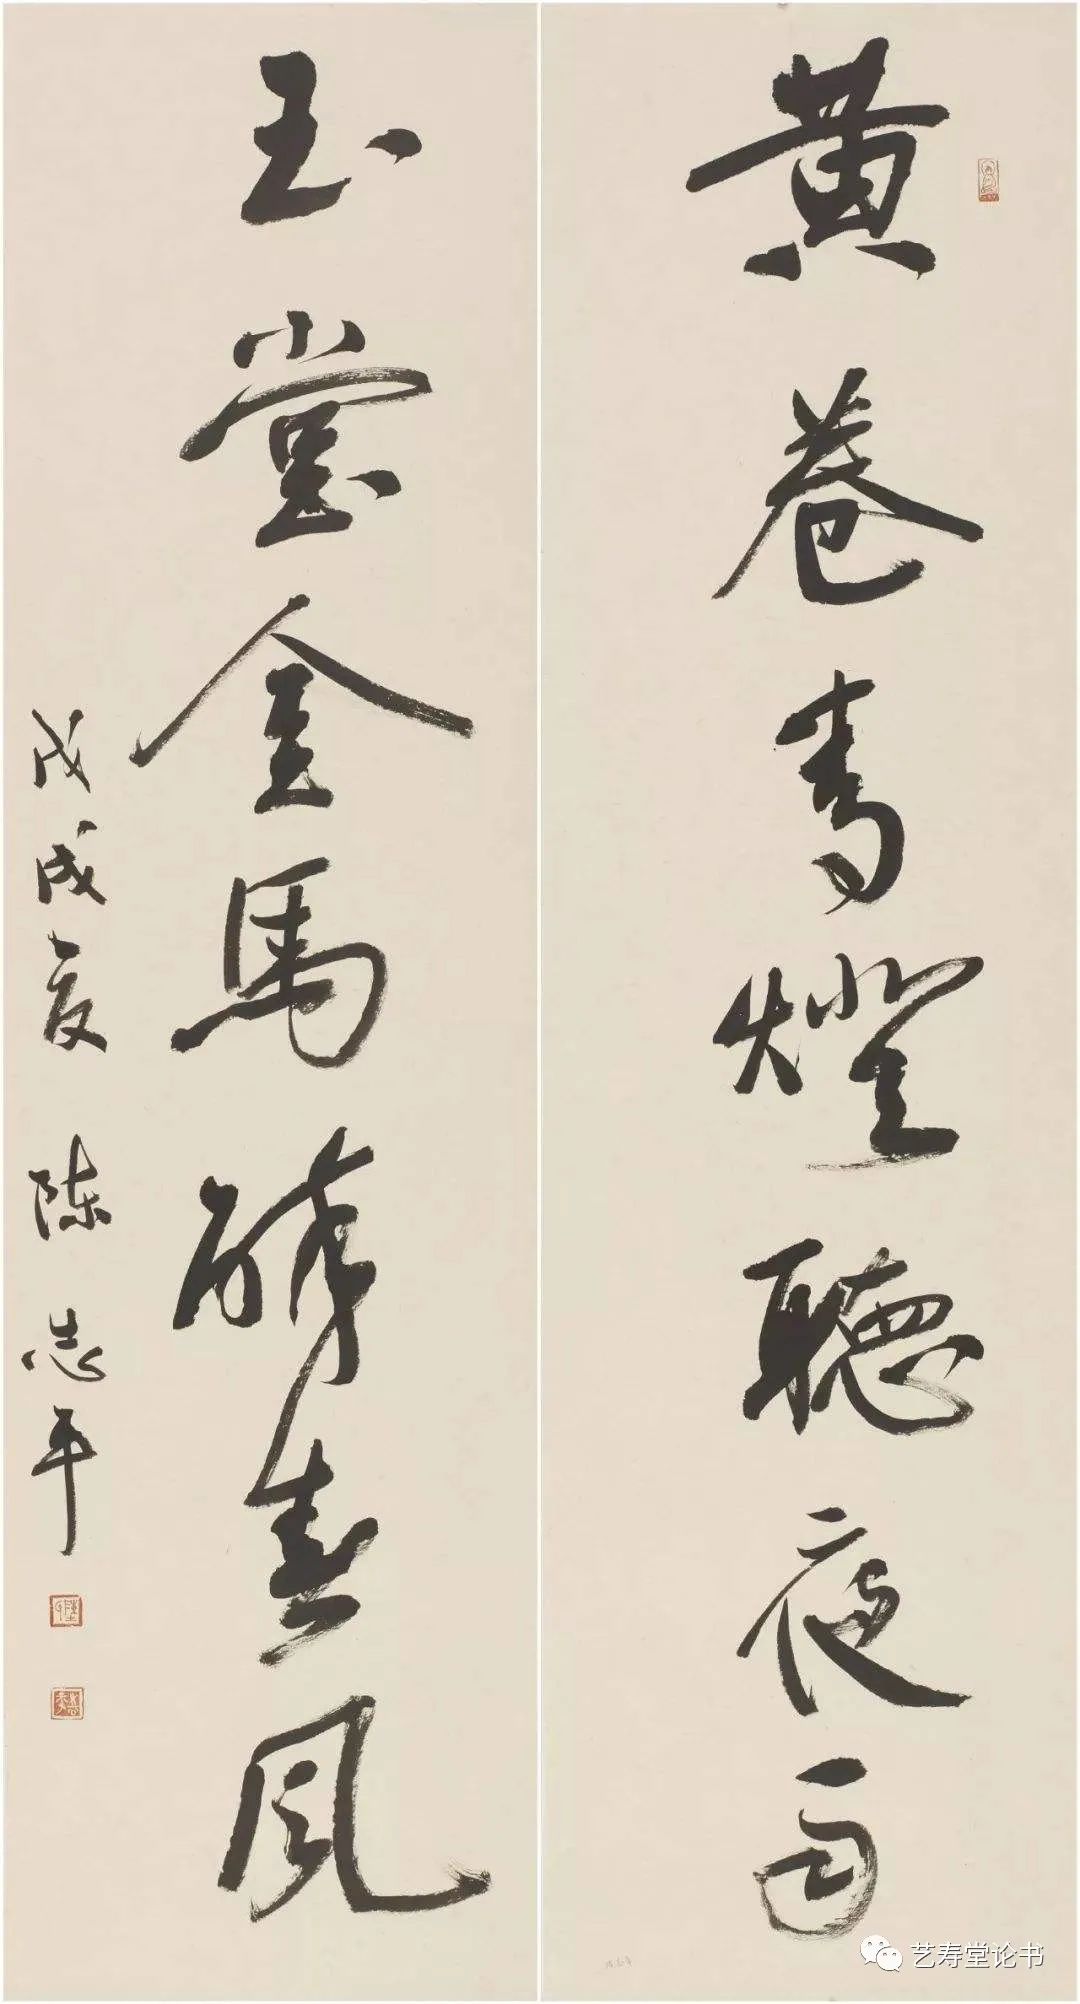 黄卷青燈聽夜雨
玉堂金馬醉春風
戊戌夏 陈志平
艺寿堂论书